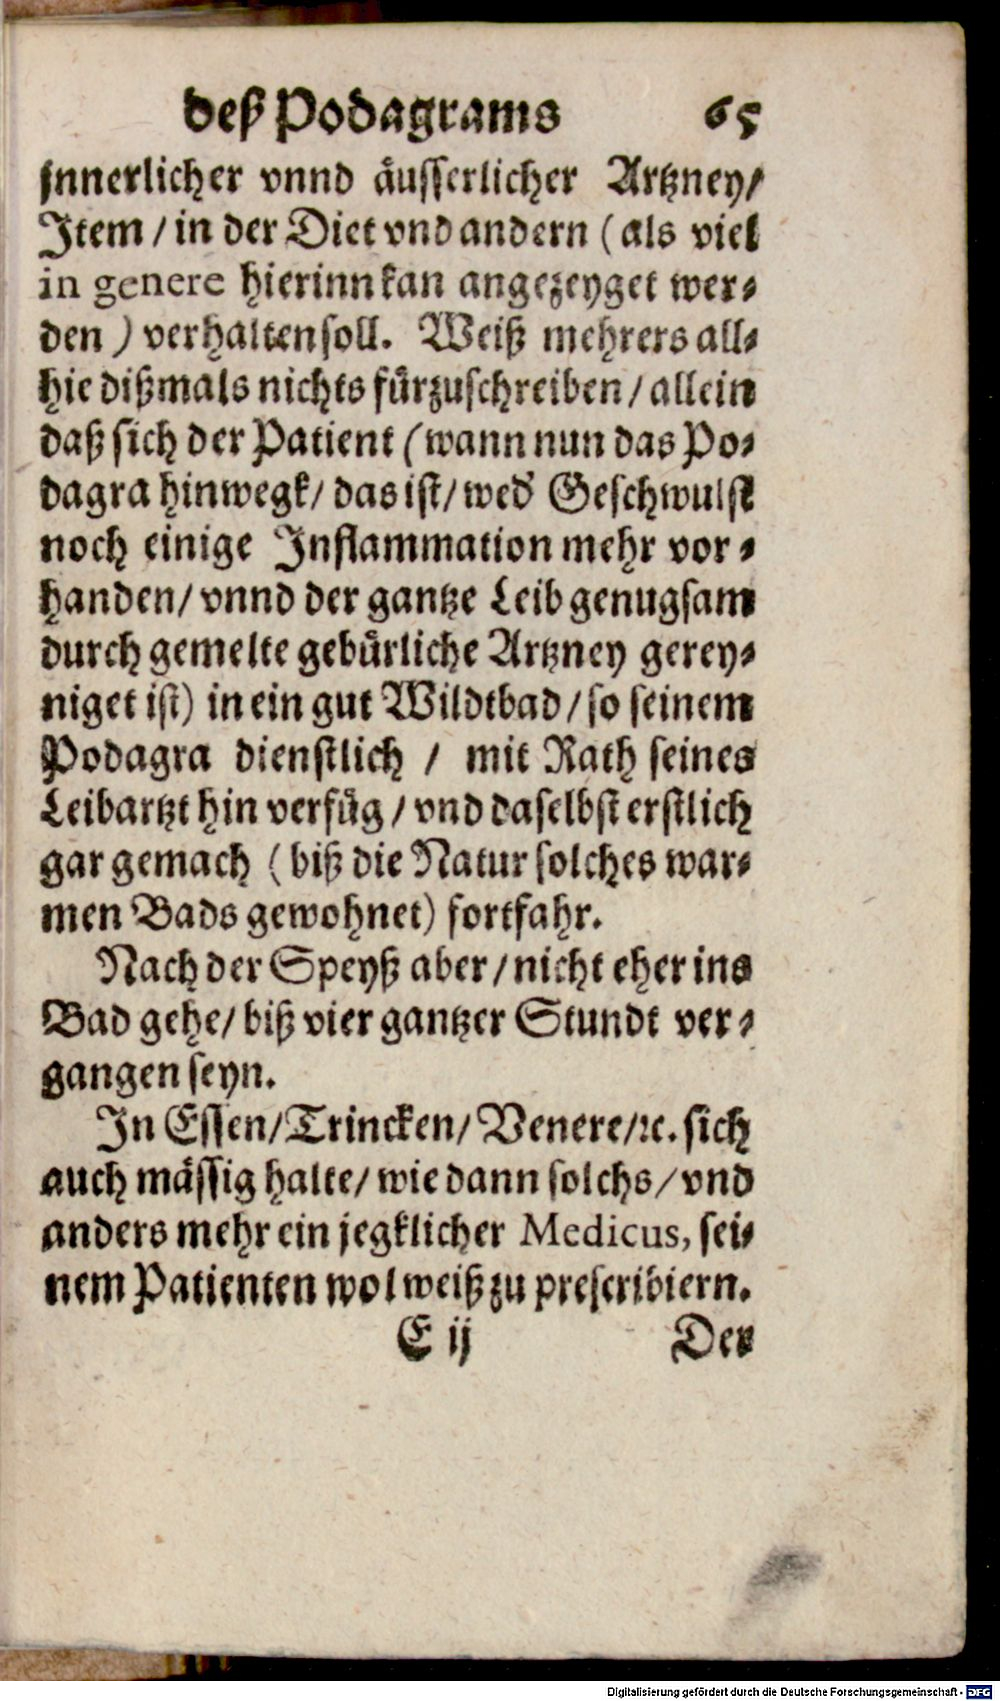 deß Podagrams 65
innerlicher vnnd äusserlicher Artzney/
Item / in der Diet vnd andern ( als viel
in genere hierinn kan angezeyget wer-
den ) verhalten soll. Weiß mehrers all-
hie dißmals nichts fürzuschreiben / allein
daß sich der Patient ( wann nun das Po-
dagra hinwegk / das ist / wed' Geschwulst
noch einige Inflammation mehr vor-
handen / vnnd der gantze Leib genugsam
durch gemelte gebürliche Artzney gerey-
niget ist) in ein gut Wildtbad / so seinem
Podagra dienstlich / mit Rath seines
Leibartzt hin verfüg / vnd daselbst erstlich
gar gemach ( biß die Natur solches war-
men Bads gewohnet) fortfahr.
Nach der Speyß aber / nicht eher ins
Bad gehe / biß vier gantzer Stundt ver-
gangen seyn.
In Essen / Trincken / Venere / ꝛc. sich
auch mässig halte / wie dann solchs / vnd
anders mehr ein jegklicher Medicus, sei-
nem Patienten wol weiß zu prescribiern.
E ij Der
Digitalisierung gefördert durch die Deutsche Forschungsgemeinschaft - DFG